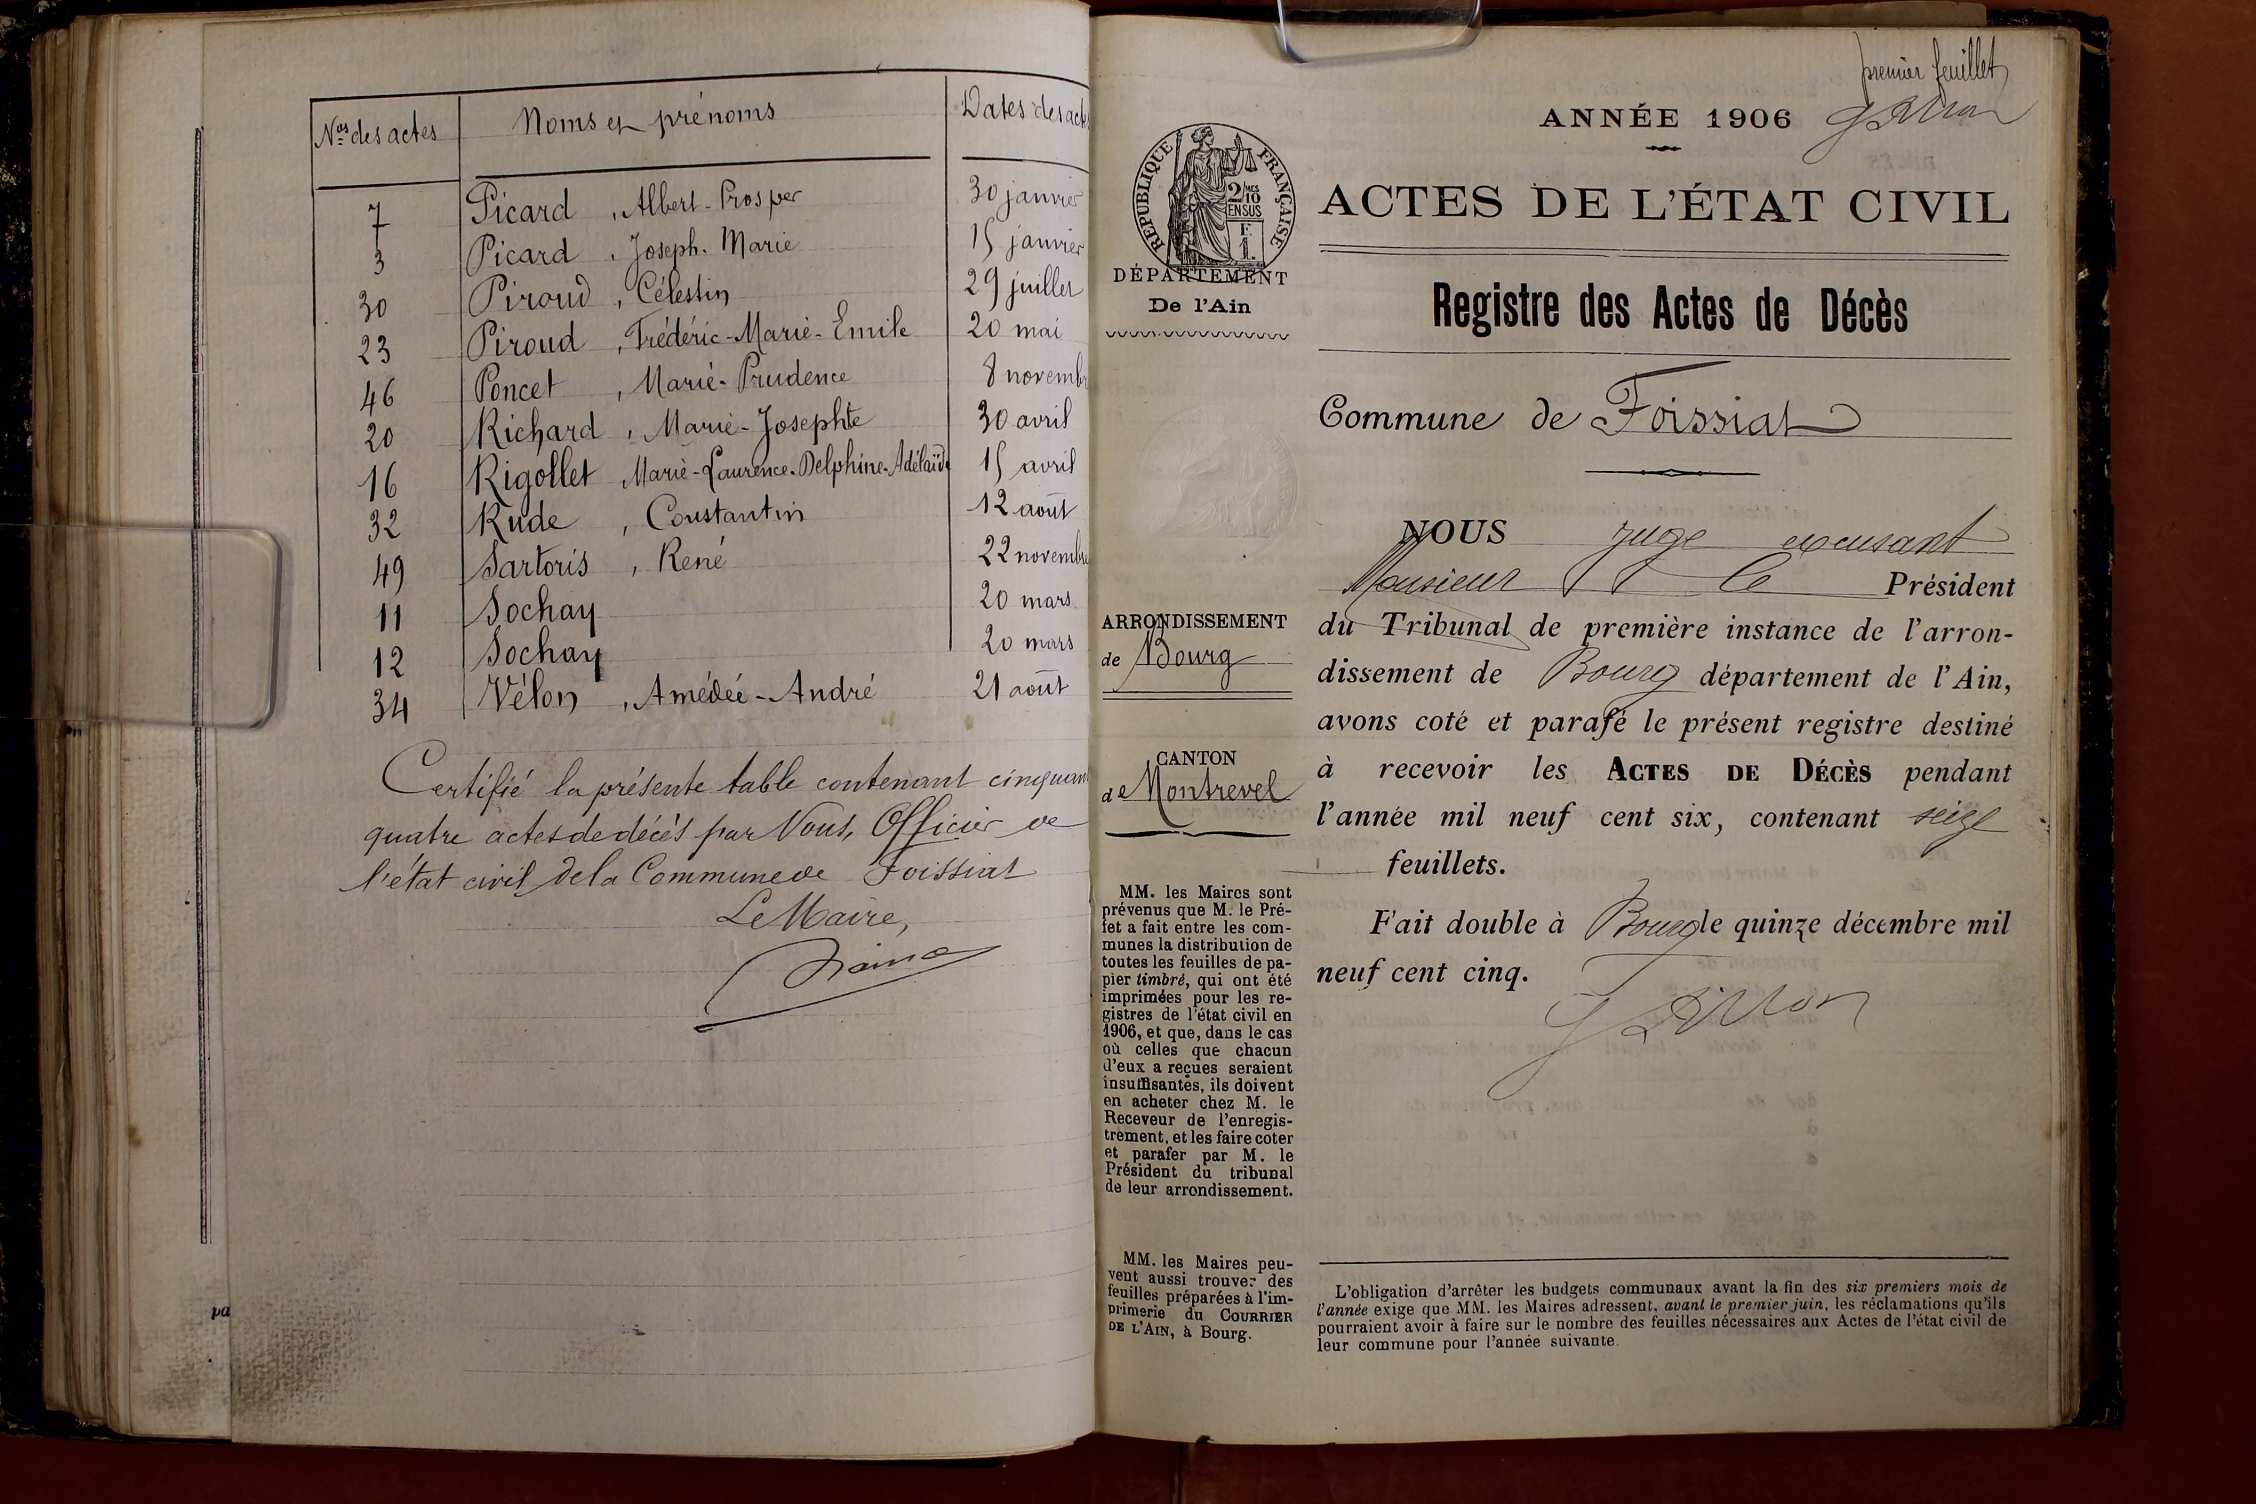 Nos des actes Noms et prénoms Dates des actes
7 Picard, Albert-Prosper 30 janvier
3 Picard, Joseph-Marie 15 janvier
30 Piroud, Célestin 29 juillet
23 Piroud, Frédéric-Marie-Emile 20 mai
46 Poncet, Marie-Prudence 8 novembr
20 Richard, Marie-Josephte 30 avril
16 Rigollet, Marie-Laurence-Delphine-Adélaïde 15 avril
32 Rude, Constantin 12 août
49 Sartoris, René 22 novembre
11 Sochay 20 mars
12 Sochay 20 mars
34 Vélon, Amédée-André 21 août
Certifié la présente table contenant cinquan
quatre actes de décès par Nous, Officier de
l'état civil de la Commune de Foissiat
Le Maire,
pa
premier feuillet
ANNÉE 1906
RÉPUBLIQUE FRANÇAISE
2/10 MES
EN SUS
F.
1.
DÉPARTEMENT
De l'Ain
ACTES DE L'ÉTAT CIVIL
Registre des Actes de Décès
Commune de Foissiat
ARRONDISSEMENT
de Bourg
CANTON
de Montrevel
MM. les Maires sont
prévenus que M. le Pré-
fet a fait entre les com-
munes la distribution de
toutes les feuilles de pa-
pier timbré, qui ont été
imprimées pour les re-
gistres de l'état civil en
1906, et que, dans le cas
où celles que chacun
d'eux a reçues seraient
insuffisantes, ils doivent
en acheter chez M. le
Receveur de l'enregis-
trement, et les faire coter
et parafer par M. le
Président du tribunal
de leur arrondissement.
MM. les Maires peu-
vent aussi trouver des
feuilles préparées à l'im-
primerie du COURRIER
DE L'AIN, à Bourg.
NOUS juge
Monsieur le Président
du Tribunal de première instance de l'arron-
dissement de Bourg département de l'Ain,
avons coté et parafé le présent registre destiné
à recevoir les ACTES DE DÉCÈS pendant
l'année mil neuf cent six, contenant seize
feuillets.
Fait double à Bourg le quinze décembre mil
neuf cent cinq.
L'obligation d'arrêter les budgets communaux avant la fin des six premiers mois de
l'année exige que MM. les Maires adressent, avant le premier juin, les réclamations qu'ils
pourraient avoir à faire sur le nombre des feuilles nécessaires aux Actes de l'état civil de
leur commune pour l'année suivante.